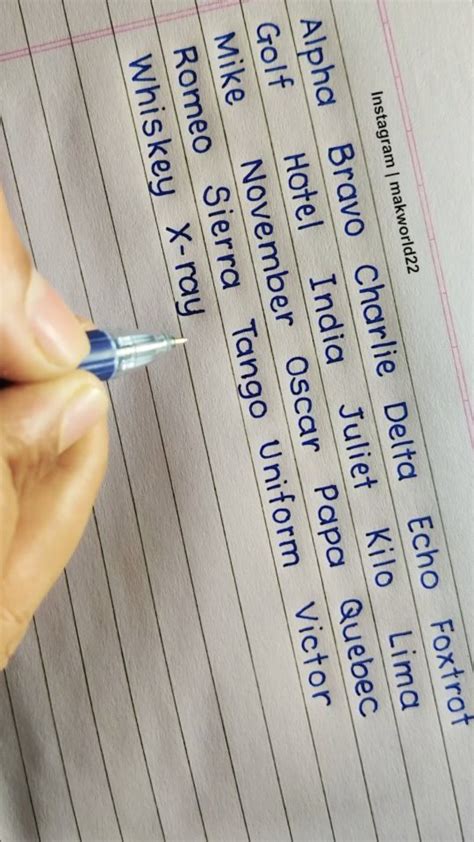 Instagram | makworld22
Alpha Bravo Charlie Delta Echo Foxtrot
Golf Hotel India Juliet Kilo Lima
Mike November Oscar Papa Quebec
Romeo Sierra Tango Uniform Victor
Whiskey X-ray